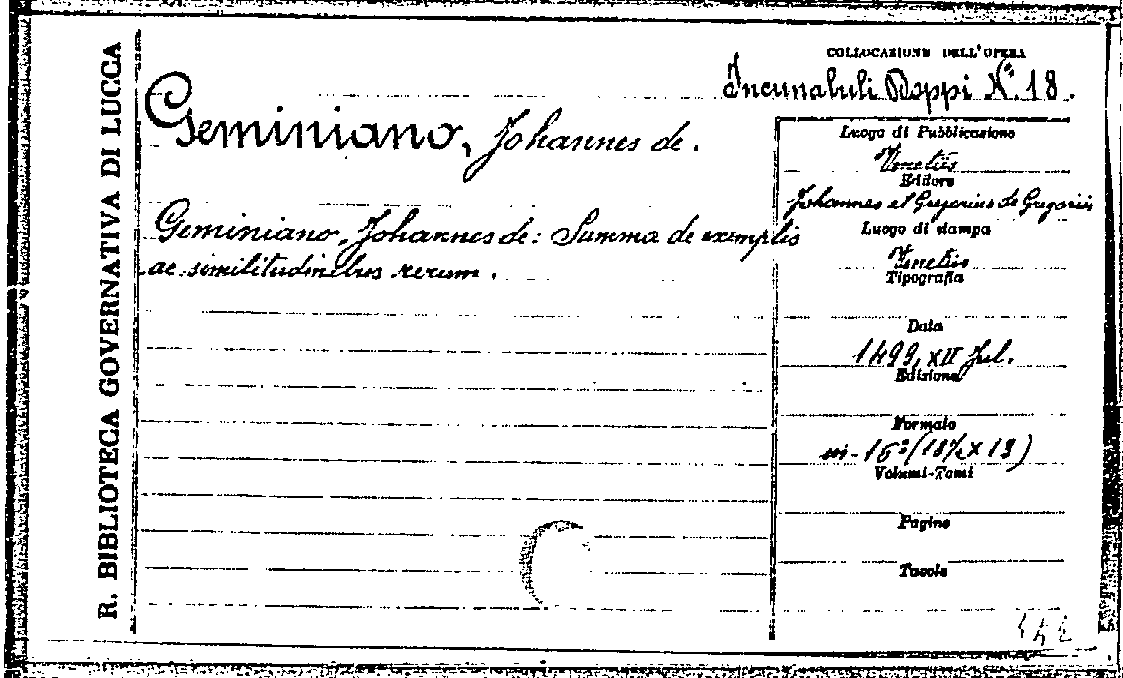 R. BIBLIOTECA GOVERNATIVA DI LUCCA
COLLOCAZIONE DELL'OPERA
Incunabuli Poppi N.º 18.
Geminiano, Johannes de.
Geminiano, Johannes de: Summa de exemplis
ac similitudinibus rerum.
Luogo di Pubblicazione
Venetiis
Editore
Johannes et Gregorius de Gregoriis
Luogo di stampa
Venetiis
Tipografia
Data
1499, XII Jul.
Edizione
Formato
in-16º (18½ X 13)
Volumi-Tomi
Pagine
Tavole